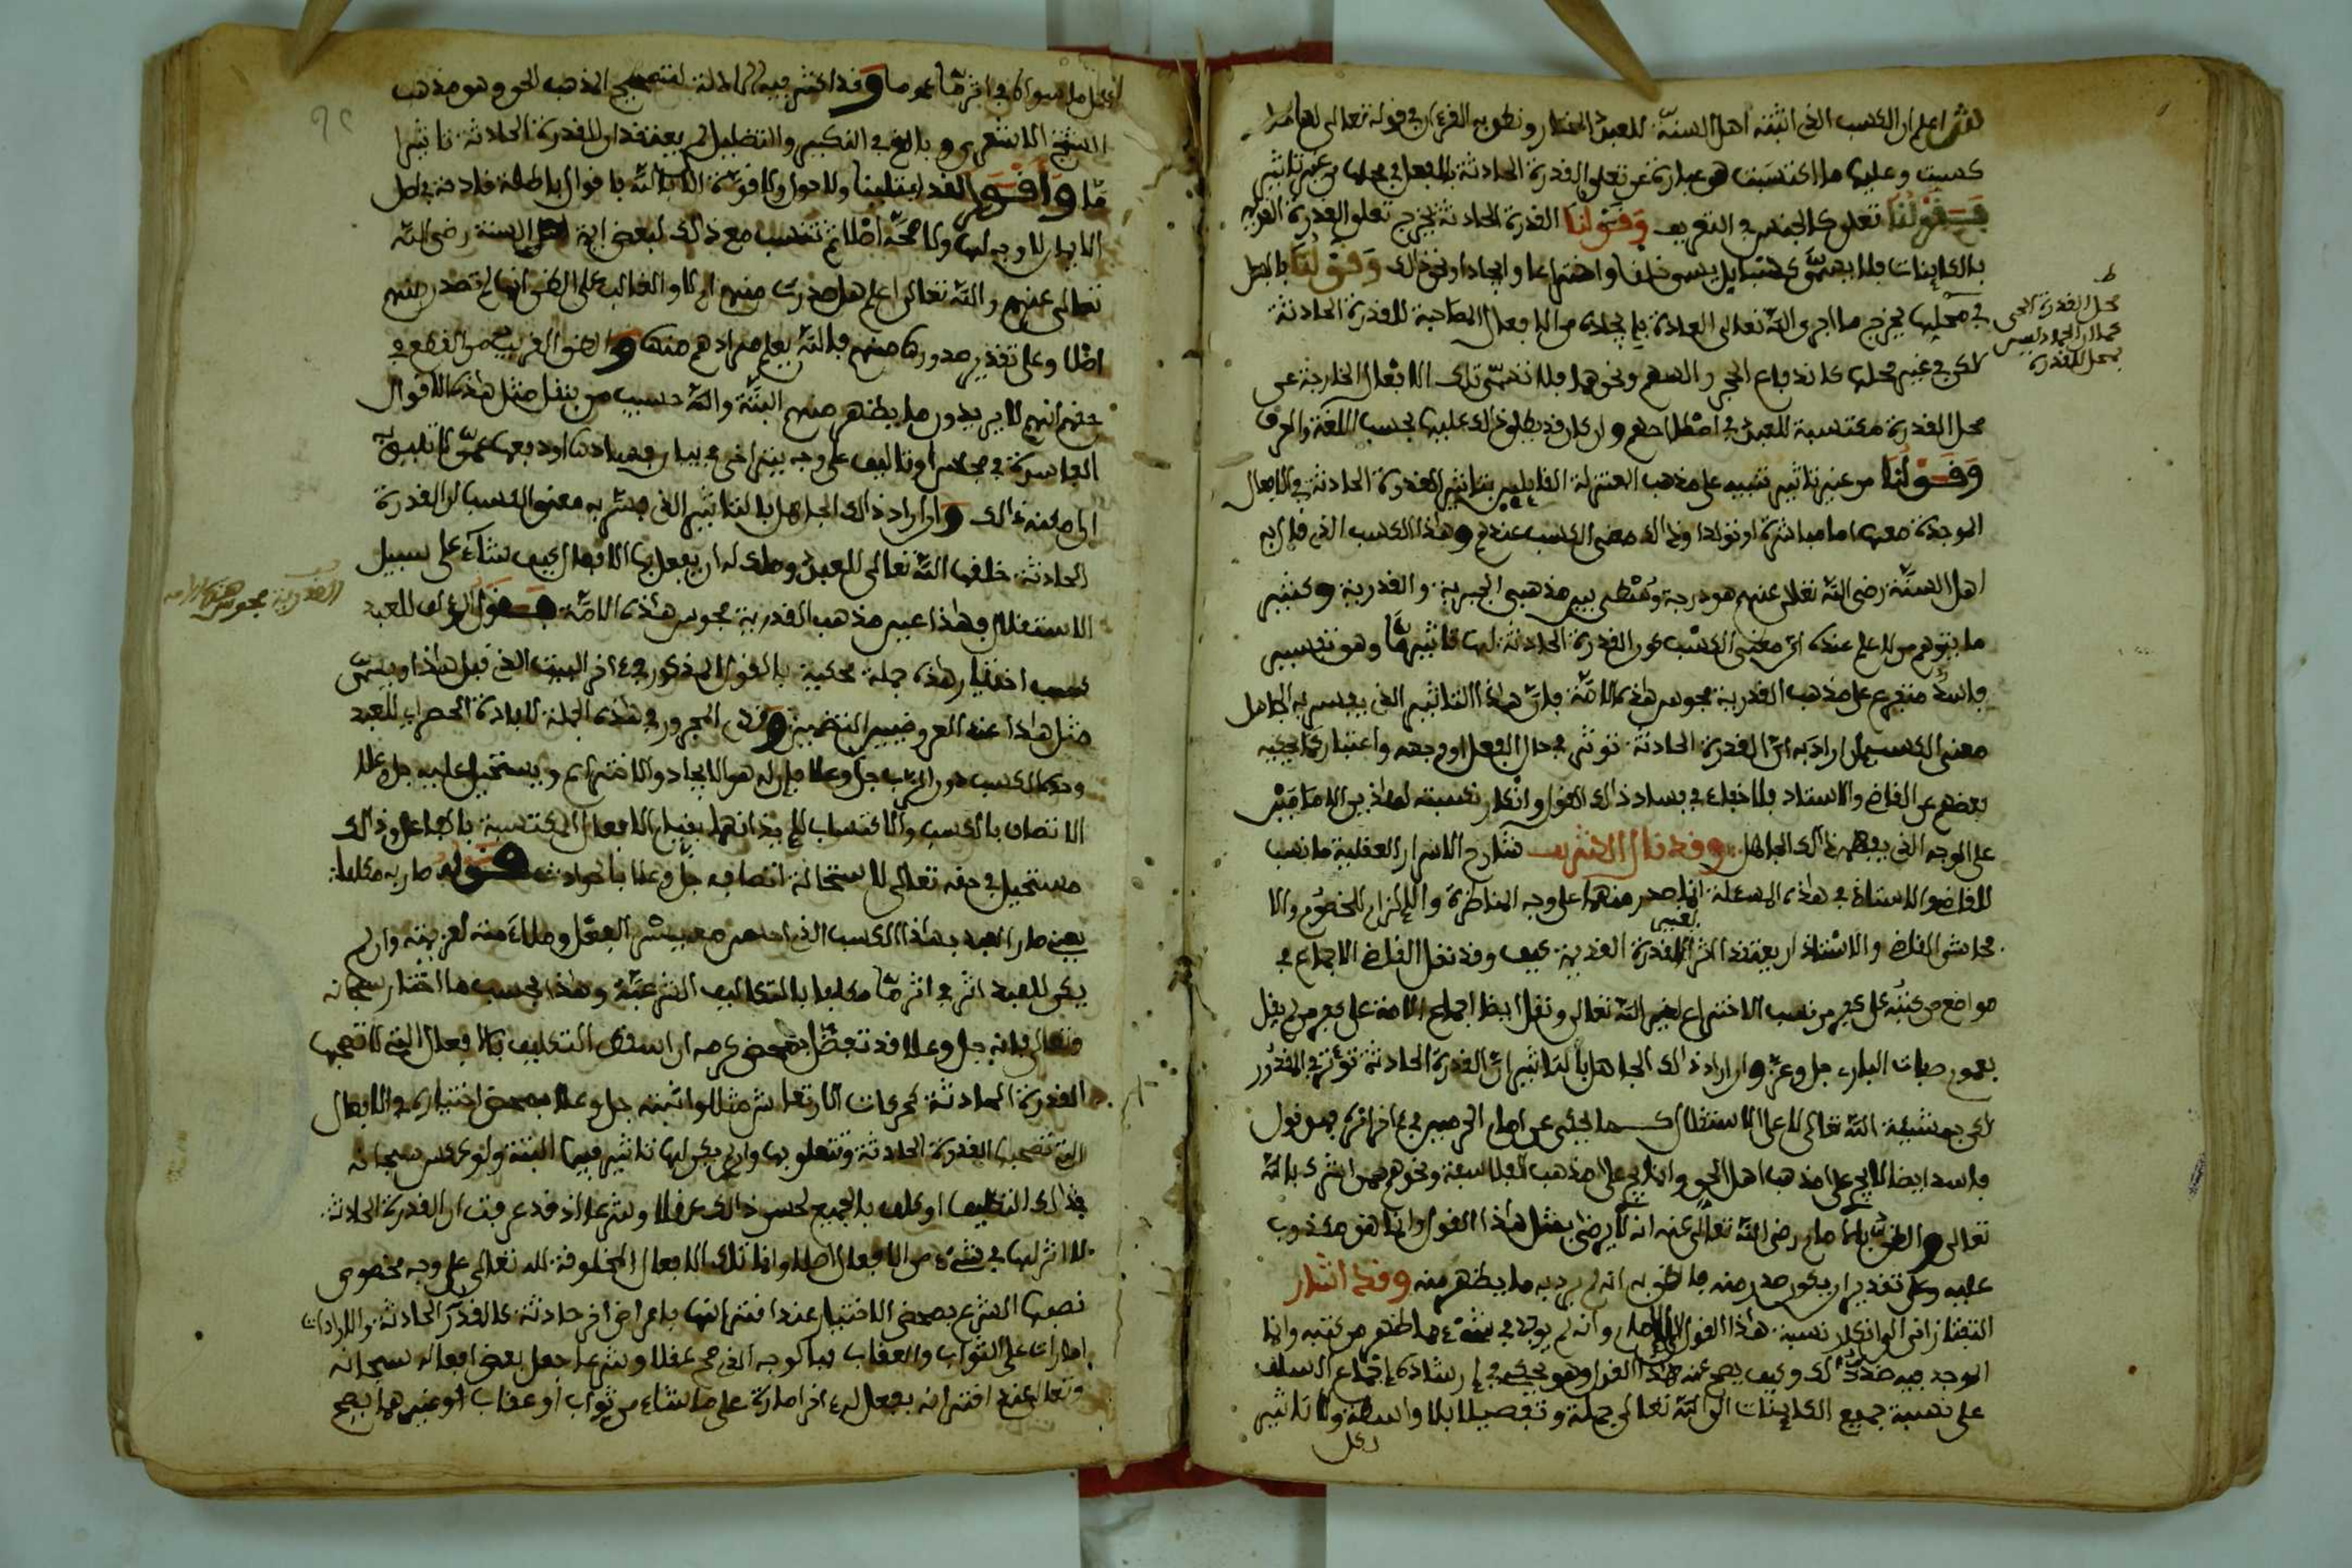 ش اعلم ان الكسب الذي اثبته اهل السنة للعبد المختار ونطق به القرءان في قوله تعالى لها ما
كسبت وعليها ما اكتسبت هو عبارة عن تعلق القدرة الحادثة بالفعل في محلها من غير تاثير
فقولنا تعلق كالجنس في التعريف وقولنا القدرة الحادثة يخرج تعلق القدرة القديمة
بالكاينات فلا يسمى كسبا بل يسمى خلقا واختراعا وايجادا ونحو ذالك وقولنا بالفعل
في محلها يخرج ما اجرى الله تعالى العادة بايجاده من الافعال المصاحبة للقدرة الحادثة
لكن في غير محلها كاندفاع الحجر والسهم ونحوهما فلا تسمى تلك الافعال الخارجة عن
محل القدرة مكتسبة للعبد في اصطلاحهم وان كان قد يطلق ذالك عليها بحسب اللغة والعرف
وقولنا من غير تاثير تنبيه على مذهب المعتزلة القايلين بتاثير القدرة الحادثة في الافعال
الموجدة معها اما مباشرة او تولدا وذالك معنى الكسب عندهم وهذا الكسب الذي قال به
اهل السنة رضي الله تعالى عنهم هو درجة وسطى بين مذهبي الجبرية والقدرية وكثير
ما يتوهم من لا علم عنده ان معنى الكسب كون القدرة الحادثة لها تاثير ما وهو تفسير
فاسد متفرع على مذهب القدرية مجوس هذه الامة فان هذا التاثير الذي يفسر به الجاهل
معنى الكسب ان اراد به ان القدرة الحادثة توثر في حال الفعل او وجهه واعتباره كما يحكيه
بعضهم عن القاضي والاستاد فلا خفاء في فساد ذالك القول وانكار نسبته لهاذين الامامين
على الوجه الذي يفهمه ذالك الجاهل وقد قال الشريف شارح الاسرار العقلية ما نسب
للقاضي والاستاذ في هذه المسئلة انما صدر منهما على وجه المناظرة والالزام للخصوم والا
فحاشى القاضي والاستاذ ان يعتقد اثرا للقدرة القديمة كيف وقد نقل القاضي الاجماع في
مواضع من كتبه على كفر من نسب الاختراع لغير الله تعالى ونقل ايضا اجماع الامة على كفر من لم يقل
بعموم صفات البارء جل وعز وان اراد ذالك الجاهل بالتاثير ان القدرة الحادثة توثر في المقدور
لكن بمشيئة الله تعالى لا على الاستقلال كما يحكى عن امام الحرمين في ءاخر امره فهو قول
فاسد ايضا لا يجري على مذهب اهل الحق وانما يجري على مذهب الفلاسفة ونحوهم ممن اشرك بالله
تعالى والظن بالامام رضي الله تعالى عنه انه لا يرضى بمثل هذا القول وانما هو مكذوب
عليه وعلى تقدير ان يكون صدر منه فالظن به انه لم يرد به ما يظهر منه وقد اشار
التفتازاني الى انكار نسبة هذا القول للامام وانه لم يوجد في شئ مما ظهر من كتبه وانما
الموجد فيه ضد ذالك وكيف يصح عنه هذا القول وهو يحكي في ارشاده اجماع السلف
على نسبة جميع الكاينات الى الله تعالى جملة وتفصيلا بلا واسطة ولا تاثير
لكل
محل القدرة الحي
كما ان الجماد ليس
بمحل للقدرة
لكل ما سواه في اثر ما عموما وقد اكثر فيه الادلة لتصحيح المذهب الحق وهو مذهب
الشيخ الاشعري وبالغ في التكبير والتضليل لمن يعتقد ان للقدرة الحادثة تاثيرا
ما واقول لقد ابتلينا ولا حول ولا قوة الا بالله باقوال باطلة قادحة في اصل
الايمان لا وجه لها ولا صحة اصلا ثم تنسب مع ذالك لبعض ايمة اهل السنة رضي الله
تعالى عنهم والله تعالى اعلم هل صدرت منهم ام لا والغالب على الظن انها لم تصدر منهم
اصلا وعلى تقدير صدورها منهم فالله يعلم مرادهم منها والظن القريب من القطع في
حقهم انهم لا يريدون ما يظهر منهم البتة والله حسيب من ينقل مثل هذه الاقوال
الفاسدة في مجلس او تاليف على وجه يتراخى في بيان فسادها او دفعها عمن لا تليق
الى مكنة ذالك وان اراد ذالك الجاهل بالتاثير الذي فسر به معنى الكسب ان القدرة
الحادثة خلقها الله تعالى للعبد وملك له ان يفعل بها الافعال كيف شاء على سبيل
الاستقلال فهذا عين مذهب القدرية مجوس هذه الامة فقول المولف للعبد
كسب اختيار هذه جملة محكية بالقول المذكور في ءاخر البيت الذي قبل هذا ويسمى
مثل هذا عند العروضيين التضمين وقدم المجرور في هذه الجملة لافادة الحصر اي للعبد
وحده الكسب دون الرب جل وعلا فان له هو الايجاد والاختراع ويستحيل عليه جل وعلا
الاتصاف بالكسب والاكتساب لايذانهما بقيام الافعال المكتسبة بالفاعل وذالك
مستحيل في حقه تعالى لاستحالة اتصافه جل وعلا بالحوادث قوله صار به مكلفا
يعني صار العبد بهذا الكسب الذي
يكن للعبد اثر في اثر ما مكلفا بالتكاليف الشرعية وهذا بحسب ما اختار سبحانه
وتعالى فانه جل وعلا قد تفضل بمحض كرمه ان اسقط التكليف بالافعال التي لا تصحبها
القدرة الحادثة كحركات الارتعاش مثلا واثبته جل وعلا بمحض اختياره في الافعال
التي تصحبها القدرة الحادثة وتتعلق بها وان لم يكن لها تاثير فيها البتة ولو عكس سبحانه
في ذالك التكليف او كلف بالجميع لحسن ذالك عقلا وشرعا اذ قد عرفت ان القدرة الحادثة
لا اثر لها في شئ من الافعال اصلا وانما تلك الافعال المخلوقة لله تعالى على وجه مخصوص
نصبها الشرع بمحض الاختيار عند اقترانها باعراض اخر حادثة كالقدر الحادثة والارادات
امارات على الثواب والعقاب فبالوجه الذي صح عقلا وشرعا جعل بعض افعاله سبحانه
وتعالى عند اقترانه بفعل له ءاخر امارة على ما شاء من ثواب او عقاب او غيرهما يصح
القدرية مجوس هذه الامة